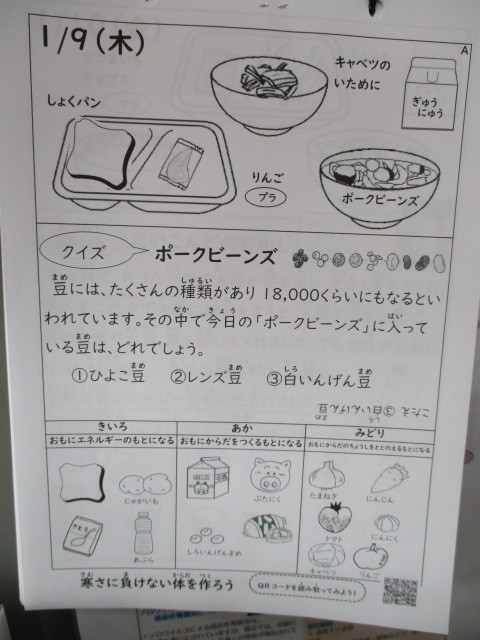 1/9(木)
A
キャベツの
いために
ぎゅう
にゅう
しょくパン
りんご
プラ
ポークビーンズ
クイズ
ポークビーンズ
豆には、たくさんの種類があり18,000くらいにもなるとい
われています。その中で今日の「ポークビーンズ」に入って
いる豆は、どれでしょう。
①ひよこ豆 ②レンズ豆 ③白いんげん豆
こたえ ③白いんげん豆
きいろ あか みどり
おもにエネルギーのもとになる おもにからだをつくるもとになる おもにからだのちょうしをととのえるもとになる
じゃがいも ぶたにく たまねぎ にんじん
さとう あぶら しろいんげんまめ トマト にんにく
キャベツ りんご
寒さに負けない体を作ろう
QRコードを読み取ってみよう!